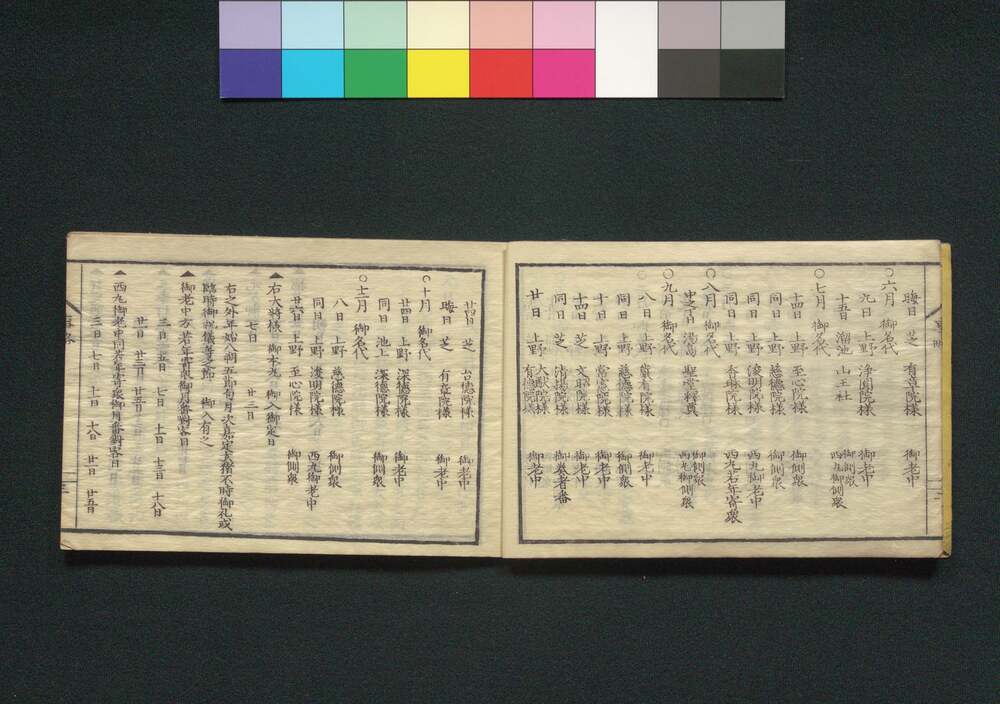 晦日 芝 有章院様 御老中
○六月 御名代
九日 上野 浄圓院様 御老中
十五日 溜池 山王社 御側衆 西丸御側衆
○七月 御名代
十四日 上野 至心院様 御側衆
同日 上野 慈徳院様 御側衆
同日 上野 浚明院様 西丸御老中
同日 上野 香琳院様 西丸若年寄衆
○八月 御名代
中之丁日 湯島 聖堂釋奠 御側衆 西丸御側衆
○九月 御名代
八日 上野 嚴有院様 御老中
同日 上野 慈徳院様 御側衆
十日 上野 常憲院様 御老中
十四日 芝 文昭院様 御老中
同日 芝 清揚院様 御奏者番
廿日 上野 大猷院様 有徳院様 御老中
廿四日 芝 台徳院様 御老中
晦日 芝 有章院様 御老中
○十月 御名代
廿四日 上野 深徳院様 御老中
同日 池上 深徳院様 御側衆
○十二月 御名代
八日 上野 慈徳院様 御側衆
同日 上野 浚明院様 西丸御老中
廿六日 上野 至心院様 御側衆
▲右大将様 御本丸 御入御定日
七日 廿二日
右之外年始八朔五節句月次嘉定玄猪不時御礼或
臨時御祝儀等之節 御入有之
▲御老中方若年寄衆御月番對客日
三日 五日 七日 十一日 十三日 十八日
廿一日 廿三日 廿五日
▲西丸御老中同若年寄衆御月番對客日
三日 七日 十日 十八日 廿日 廿五日